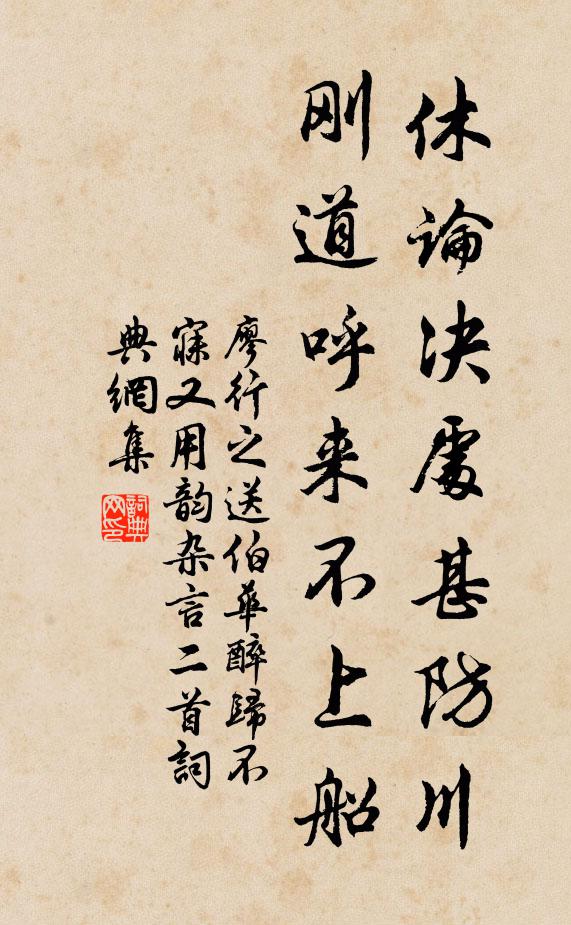 休論决處甚防川
刚道呼来不上船
廖行之送伯華醉歸不
寐又用韵杂言二首詞
典網集
詞典
网印